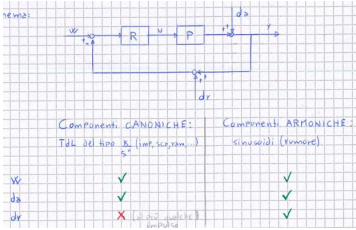 nema:
da
W
R
u
P
y
dr
Componenti CANONICHE: Componenti ARMONICHE:
TdL del tipo k/sⁿ (imp, sca, ram, ...) sinusoidi (rumore)
W ✓ ✓
da ✓ ✓
dr X (al più qualche impulso) ✓